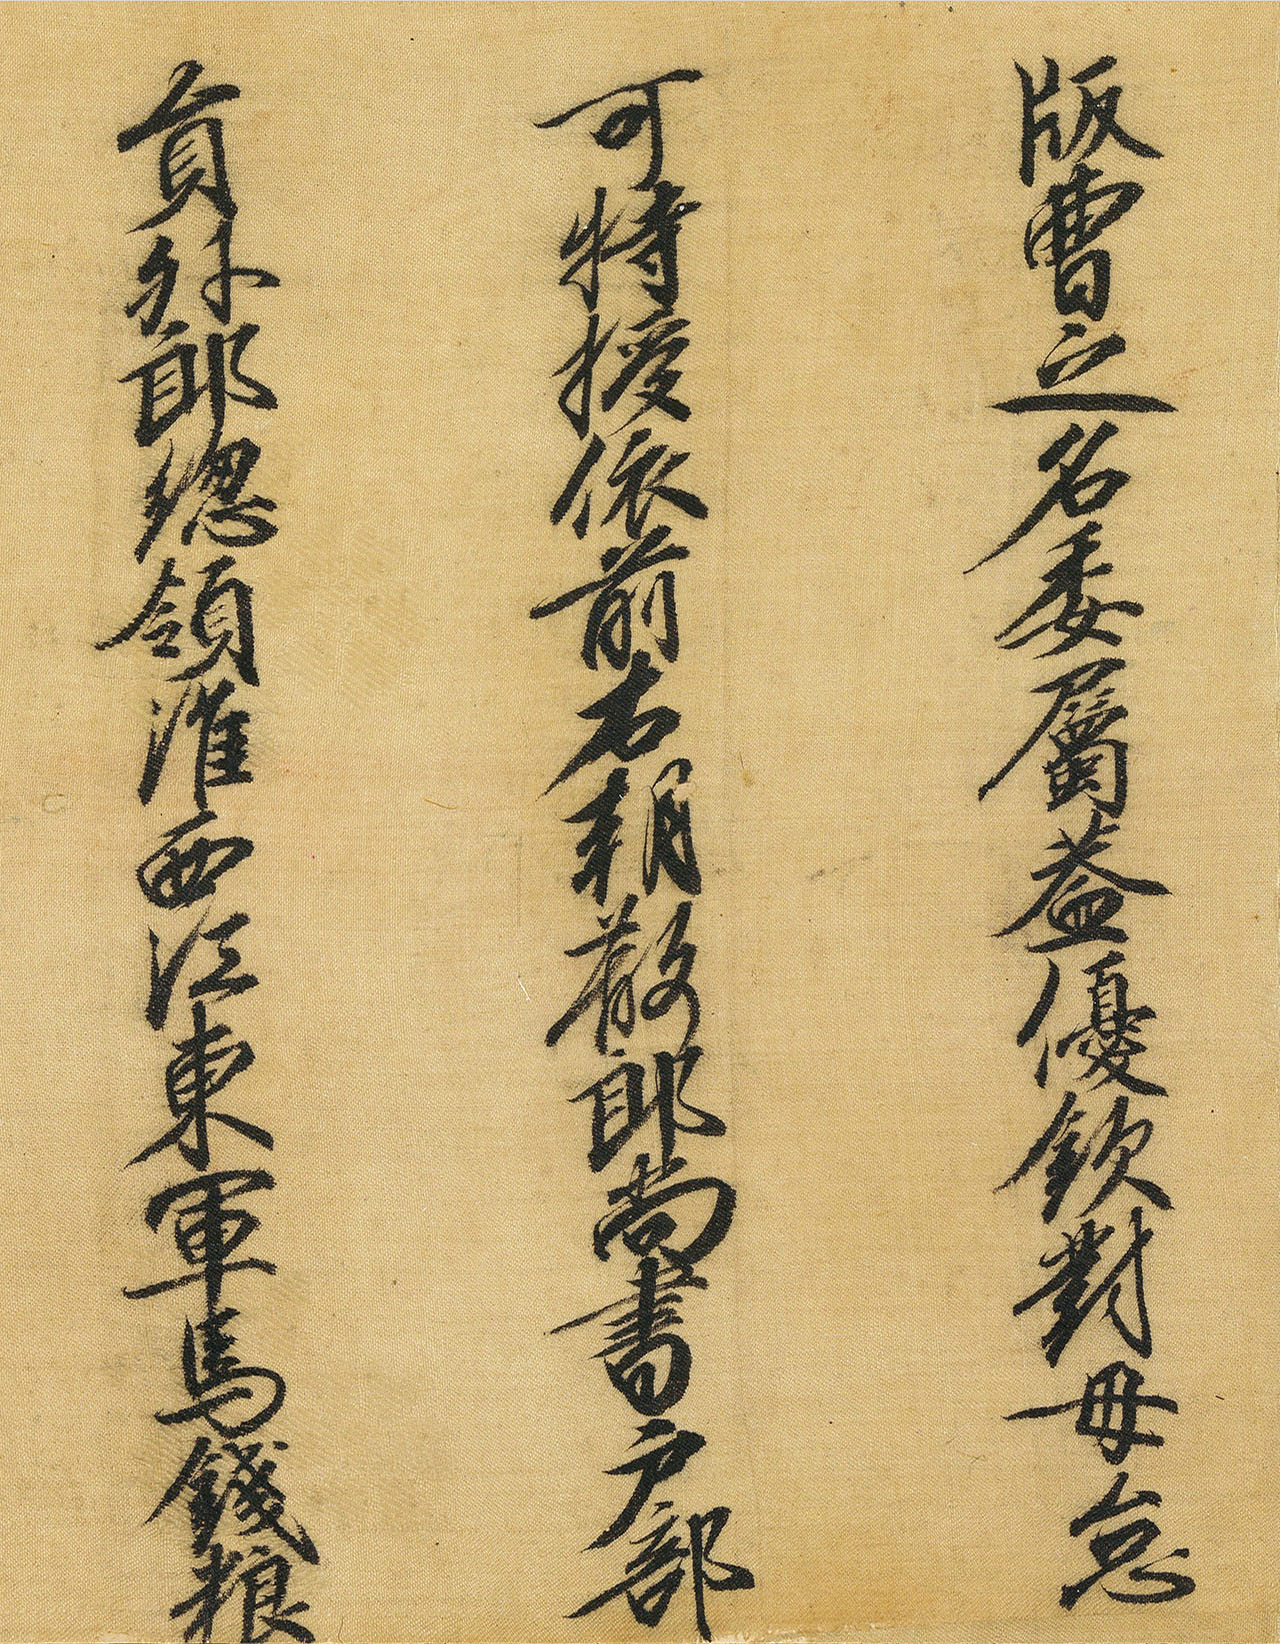 版曹之名委屬蓋優欽對毋怠
可特授依前右朝散郎尚書戶部
員外郎總領淮西江東軍馬錢糧